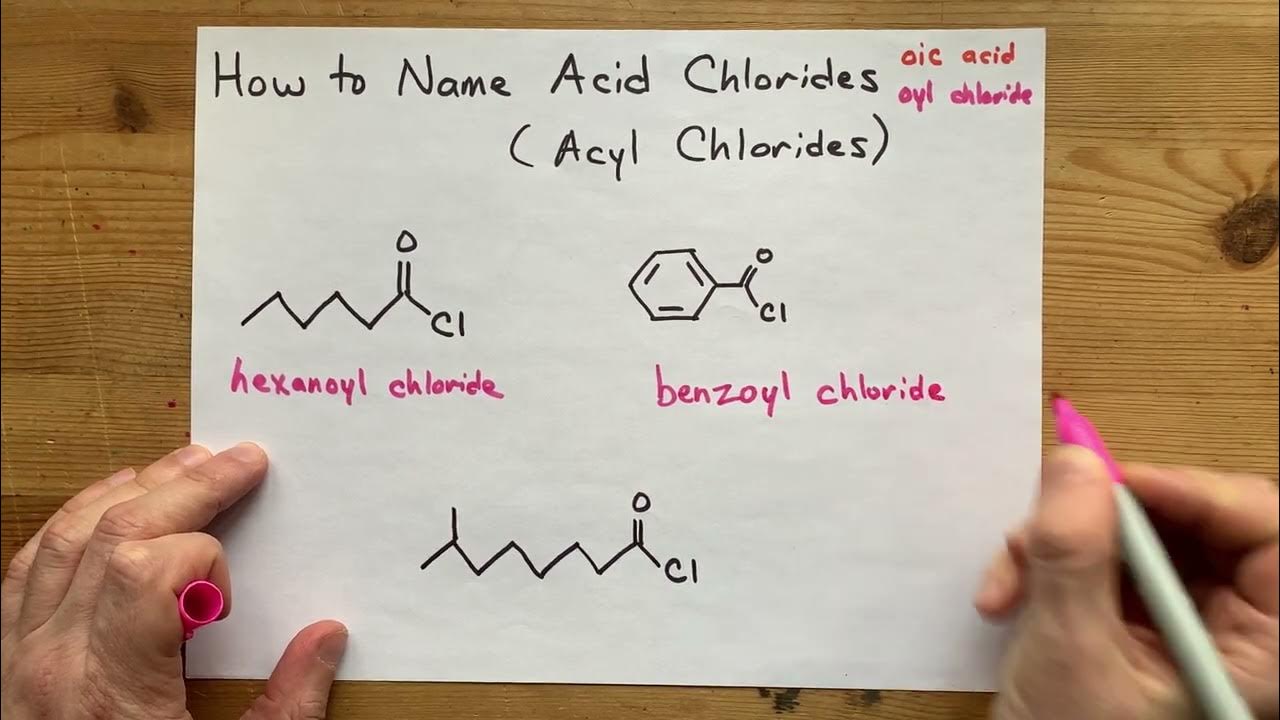 How to Name Acid Chlorides
oic acid
oyl chloride
(Acyl Chlorides)
O
Cl
hexanoyl chloride
O
Cl
benzoyl chloride
O
Cl